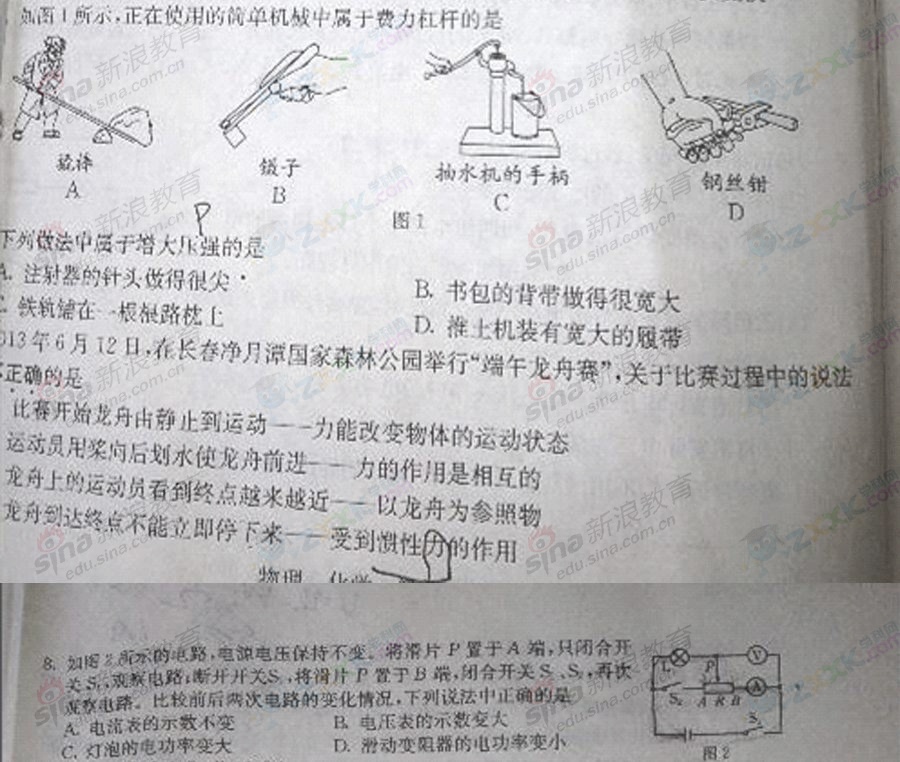 如图1所示,正在使用的简单机械中属于费力杠杆的是
撬棒
A
镊子
B
抽水机的手柄
C
钢丝钳
D
图1
P
下列做法中属于增大压强的是
A. 注射器的针头做得很尖
B. 书包的背带做得很宽大
C. 铁轨铺在一根根路枕上
D. 推土机装有宽大的履带
013年6月12日,在长春净月潭国家森林公园举行“端午龙舟赛”,关于比赛过程中的说法
不正确的是
比赛开始龙舟由静止到运动——力能改变物体的运动状态
运动员用桨向后划水使龙舟前进——力的作用是相互的
龙舟上的运动员看到终点越来越近——以龙舟为参照物
龙舟到达终点不能立即停下来——受到惯性力的作用
物理 化学
8. 如图2所示的电路,电源电压保持不变。将滑片P置于A端,只闭合开
关S₁,观察电路;断开开关S₁,将滑片P置于B端,闭合开关S₁、S₂,再次
观察电路。比较前后两次电路的变化情况,下列说法中正确的是
A. 电流表的示数不变
B. 电压表的示数变大
C. 灯泡的电功率变大
D. 滑动变阻器的电功率变小
L P V
S₂ A R B A
S₁
图2
sina新浪教育
edu.sina.com.cn
ZXXK.com